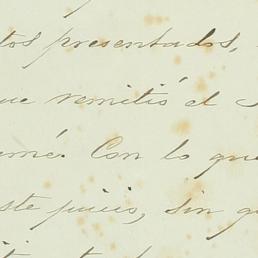 tos presentados,
ue remitió el
erné. Con lo que
ste juicio, sin